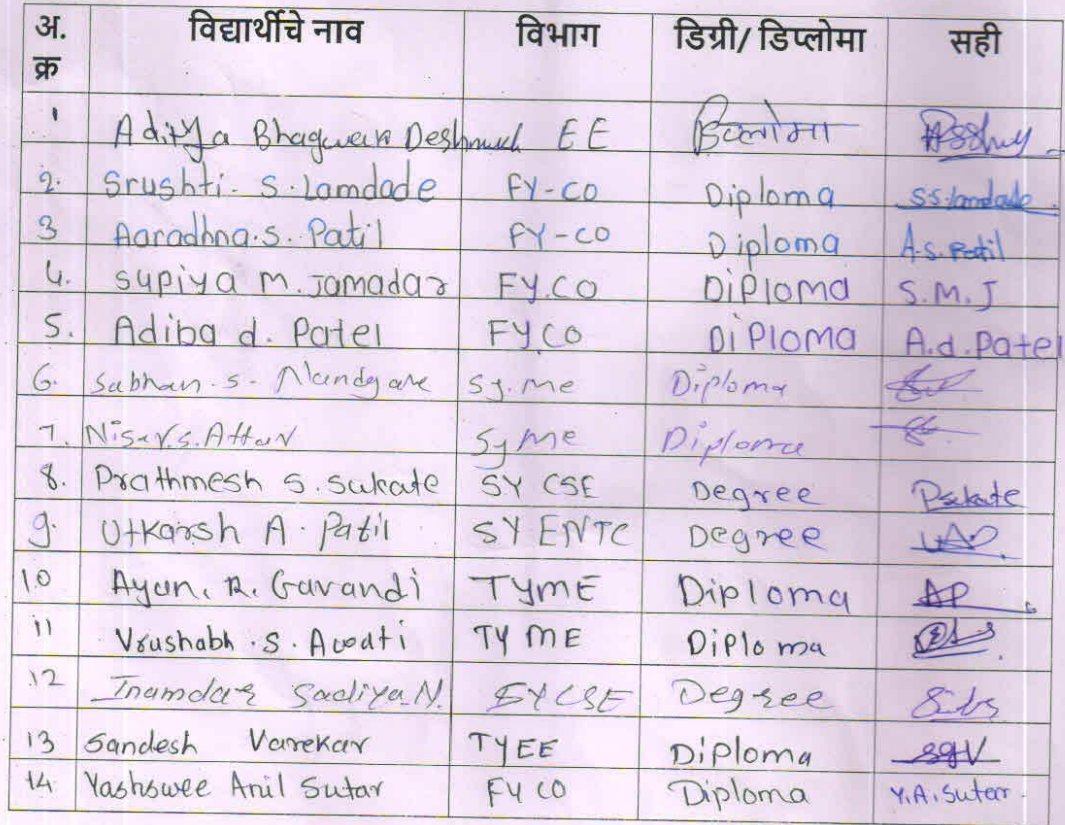 अ. क्र विद्यार्थीचे नाव विभाग डिग्री/ डिप्लोमा सही
1 Aditya Bhagwan Deshmukh EE डिप्लोमा
2. Srushti. S. Lamdade FY-CO Diploma S.S. Lamdade
3 Aaradhna. S. Patil FY-CO Diploma A.S. Patil
4. Supiya M. Jamadar FY.CO Diploma S.M.J
5. Adiba d. Patel FY.CO DiPloma A.d. Patel
6. Subhan. S. Nandgare Sy. me Diploma
7. Nisar. S. Attar Sy me Diploma
8. Prathmesh S. Sakate SY CSE Degree Psakate
9. Utkarsh A. Patil SY ENTC Degree UAP
10 Ayan. R. Gavandi TYME Diploma AP
11 Vrushabh. S. Awati TY ME Diploma
12 Inamdar Sadiya N. SYCSE Degree
13 Sandesh Varekar TYEE Diploma SGV
14 Yashswee Anil Sutar FY CO Diploma Y.A. Sutar